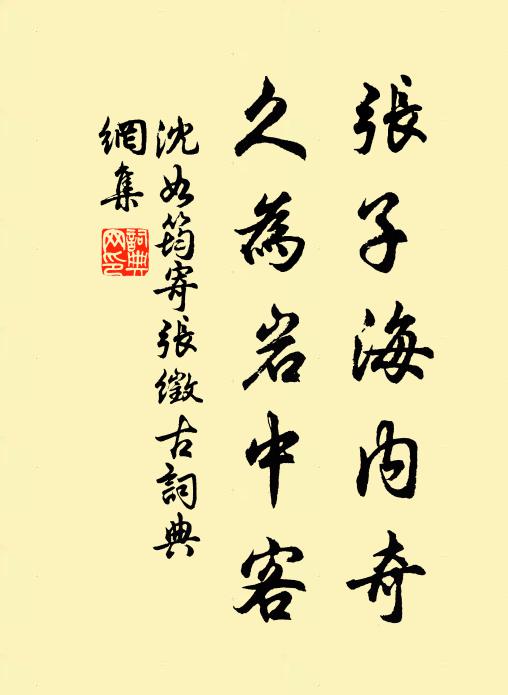 張子海内奇
久為岩中客
沈如筠寄張徵古詞典
網集
詞典
网印